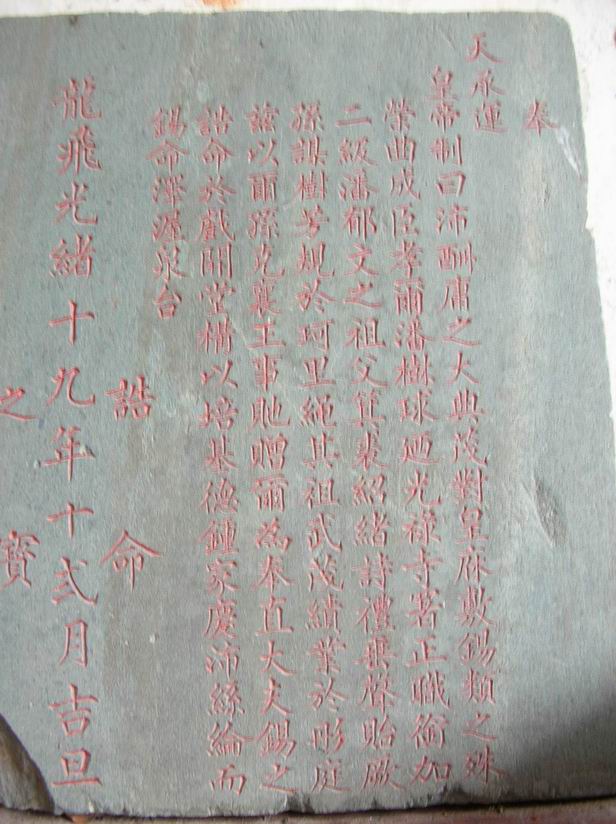 奉
天承運
皇帝制曰沛酬庸之大典茂對皇庥敷錫類之殊
榮曲成臣孝爾潘樹球廼光祿寺署正職銜加
二級潘郁文之祖父箕裘紹緒詩禮垂聲貽厥
孫謀樹芳規於珂里繩其祖武茂績業於彤庭
茲以爾孫克襄王事貤贈爾為奉直大夫錫之
誥命於戲開堂構以培基德鍾家慶沛絲綸而
錫命澤渥泉台
誥命
龍飛光緒十九年十弍月吉旦
之寶